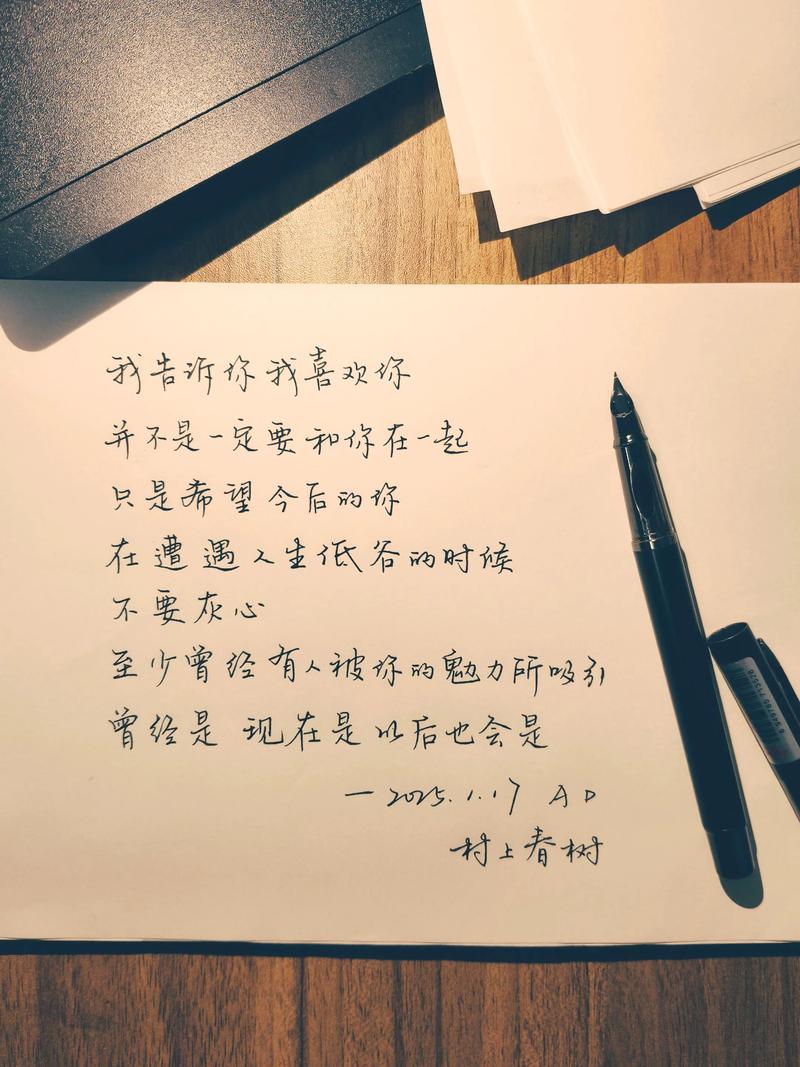 我告诉你我喜欢你
并不是一定要和你在一起
只是希望今后的你
在遭遇人生低谷的时候
不要灰心
至少曾经有人被你的魅力所吸引
曾经是 现在是以后也会是
一2025.1.17 AD
村上春树